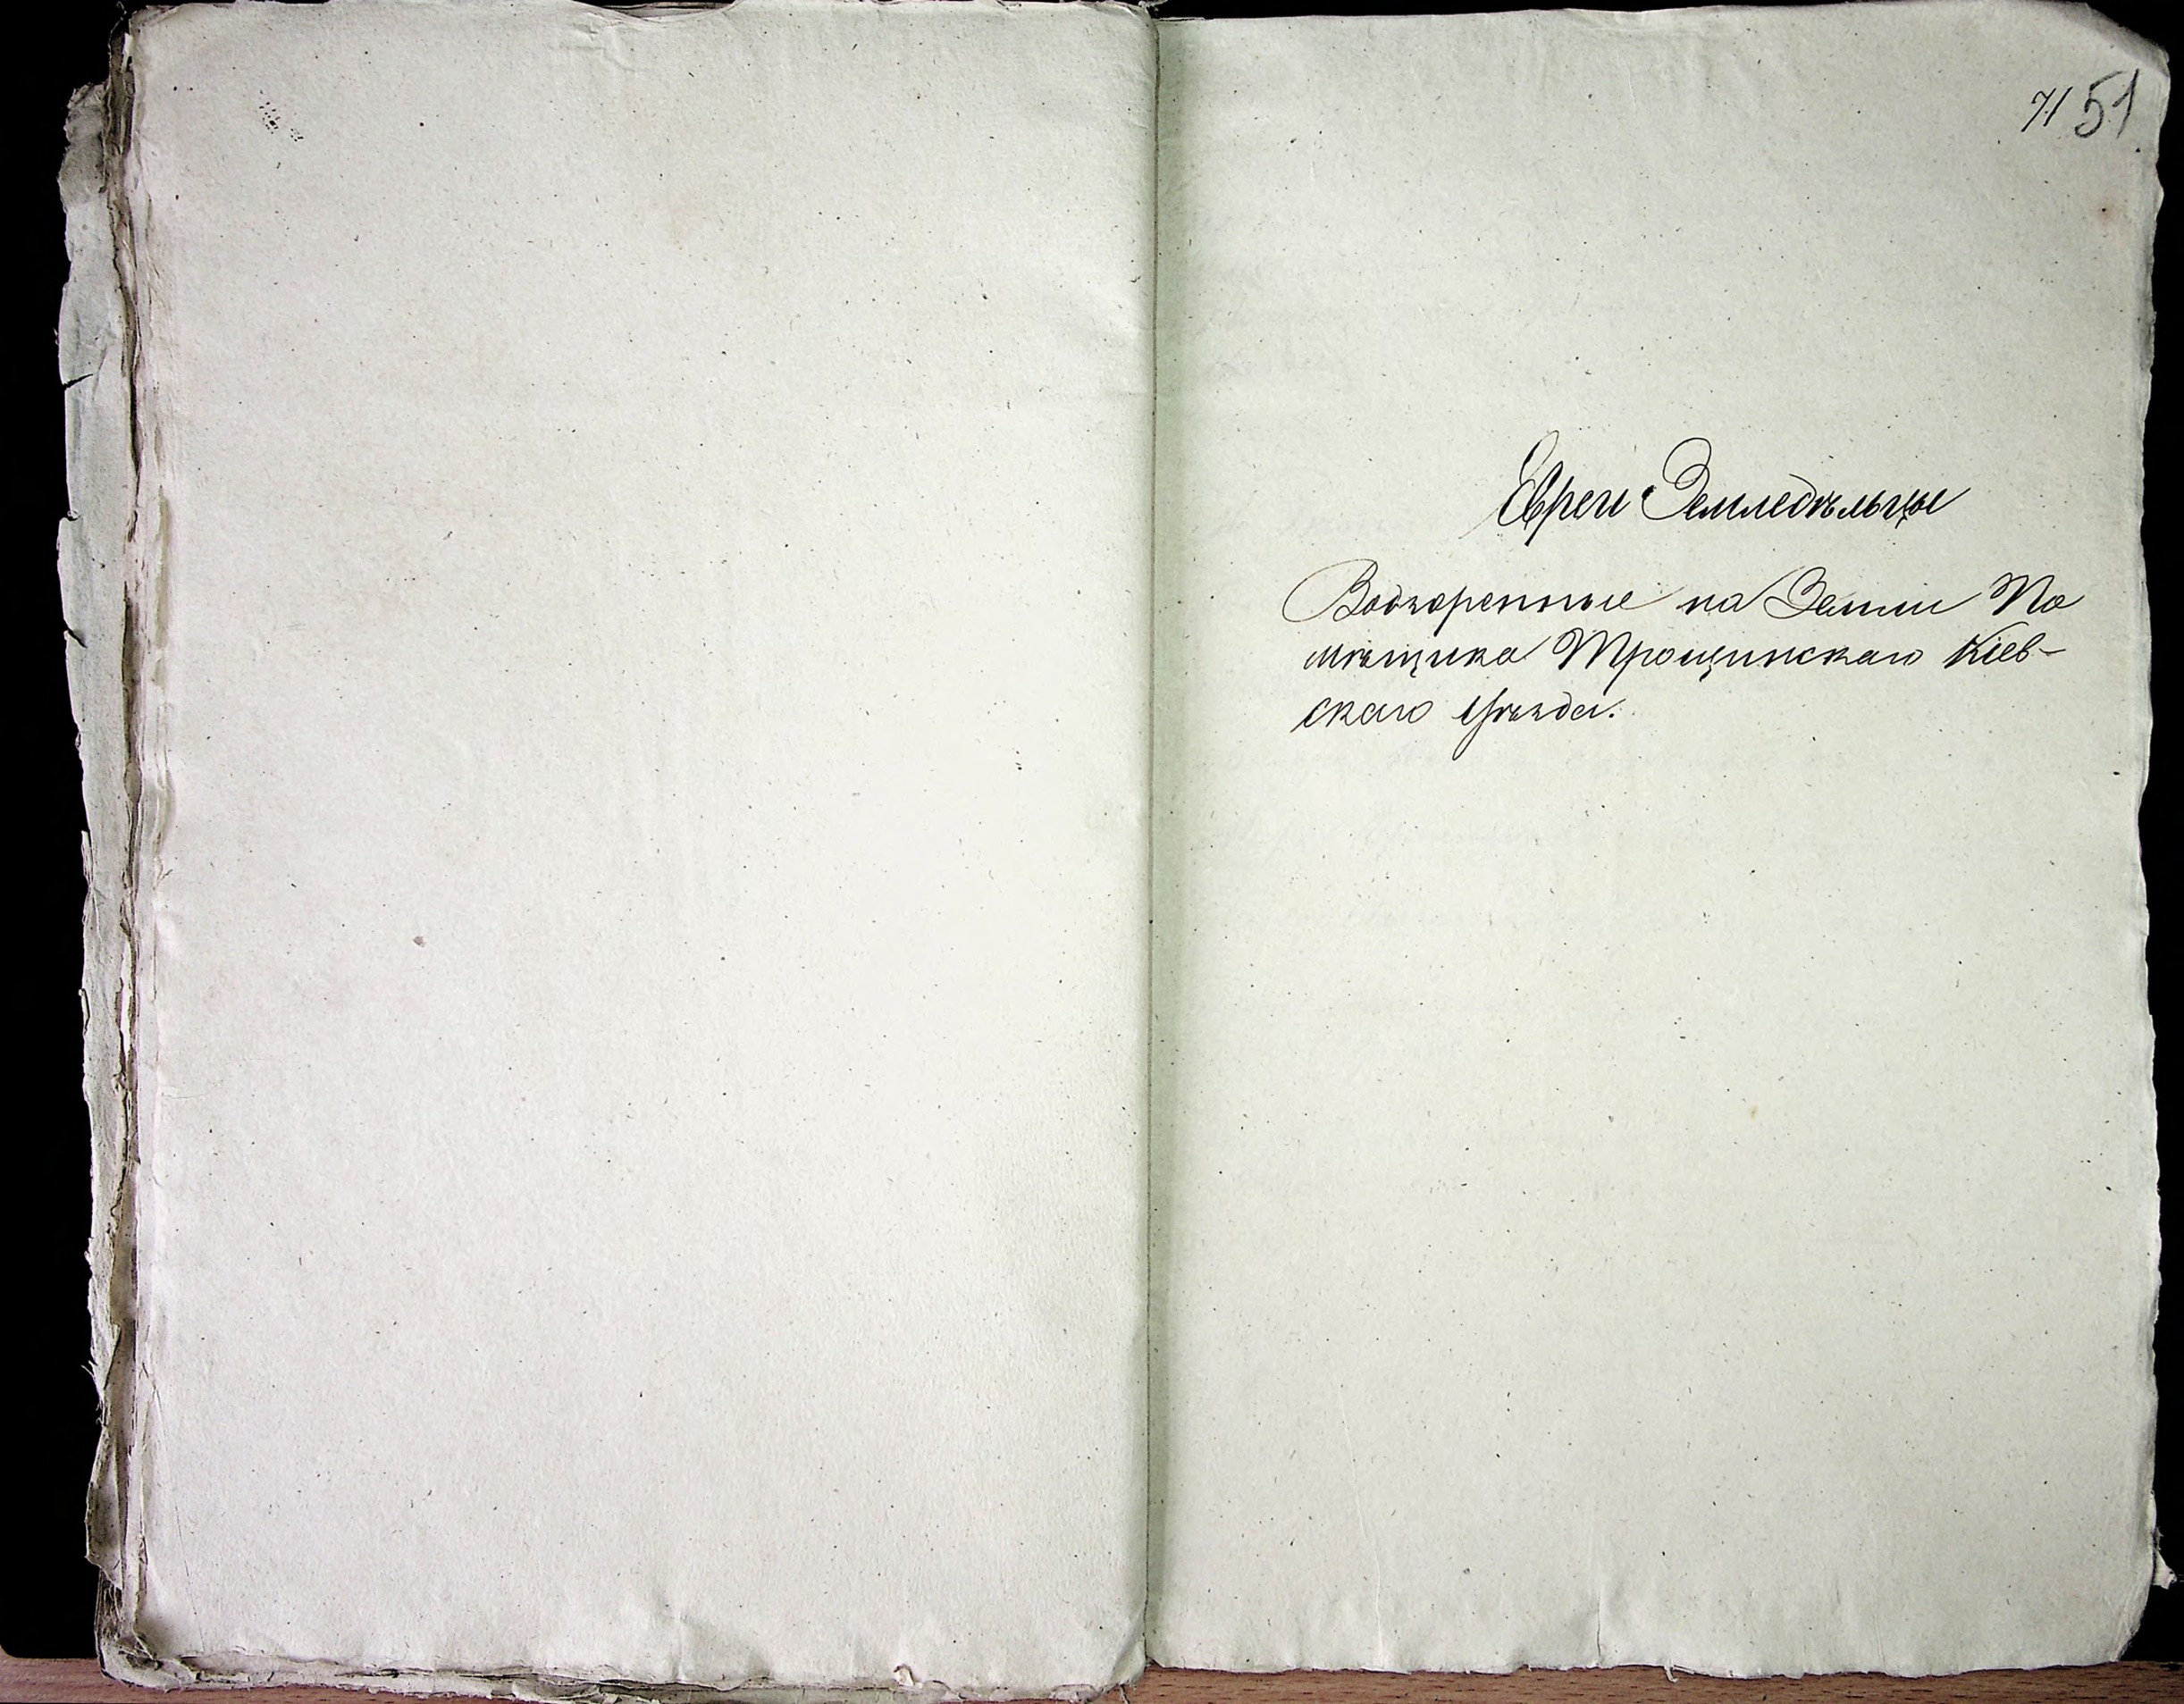 71 51
Евреи Земледѣльцы
Водворенные на Земли По
мѣщика Трощинскаго Кіев-
скаго Уѣзда.